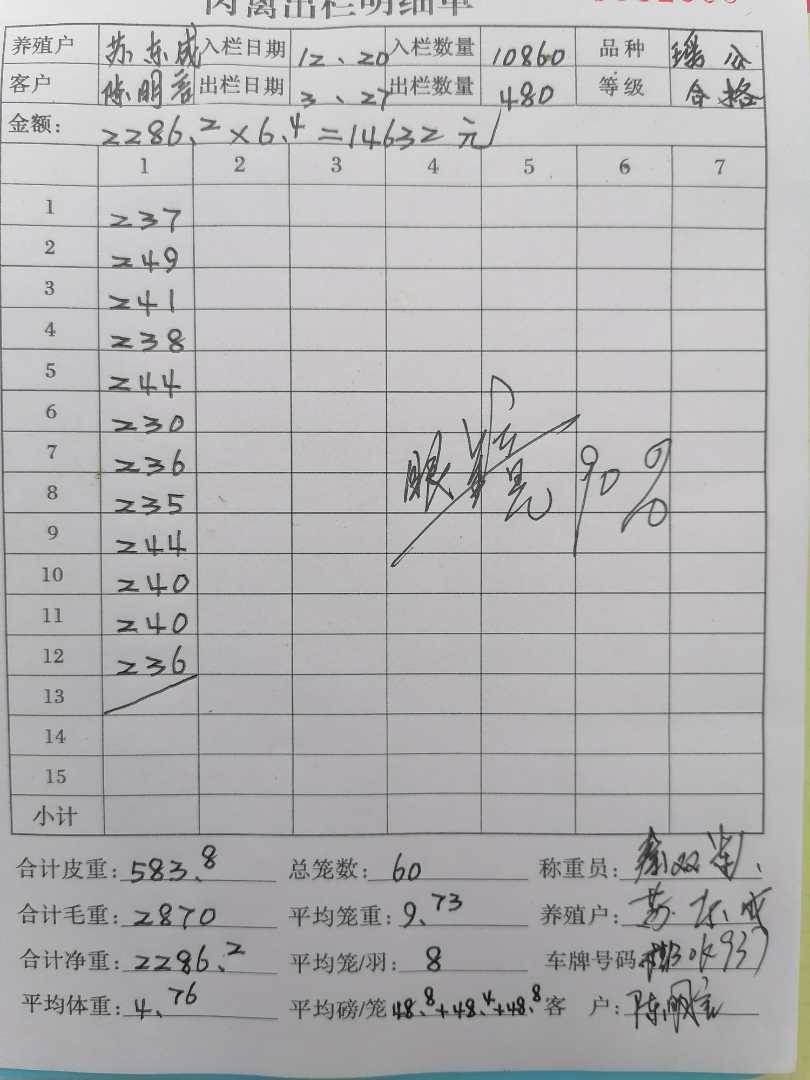 肉禽出栏明细单
养殖户 苏东成 入栏日期 12、20 入栏数量 10860 品种 瑶公
客户 陈明 出栏日期 3、27 出栏数量 480 等级 合格
金额: 2286.2×6.4=14632元
1 2 3 4 5 6 7
1 237
2 249
3 241
4 238
5 244
6 230
7 236
8 235
9 244
10 240
11 240
12 236
13
14
15
眼 90%
小计
合计皮重: 583.8 总笼数: 60 称重员:
合计毛重: 2870 平均笼重: 9.73 养殖户: 苏东成
合计净重: 2286.2 平均笼/羽: 8 车牌号码
平均体重: 4.76 平均磅/笼 48.8+48.4+48.8 客 户: 陈明